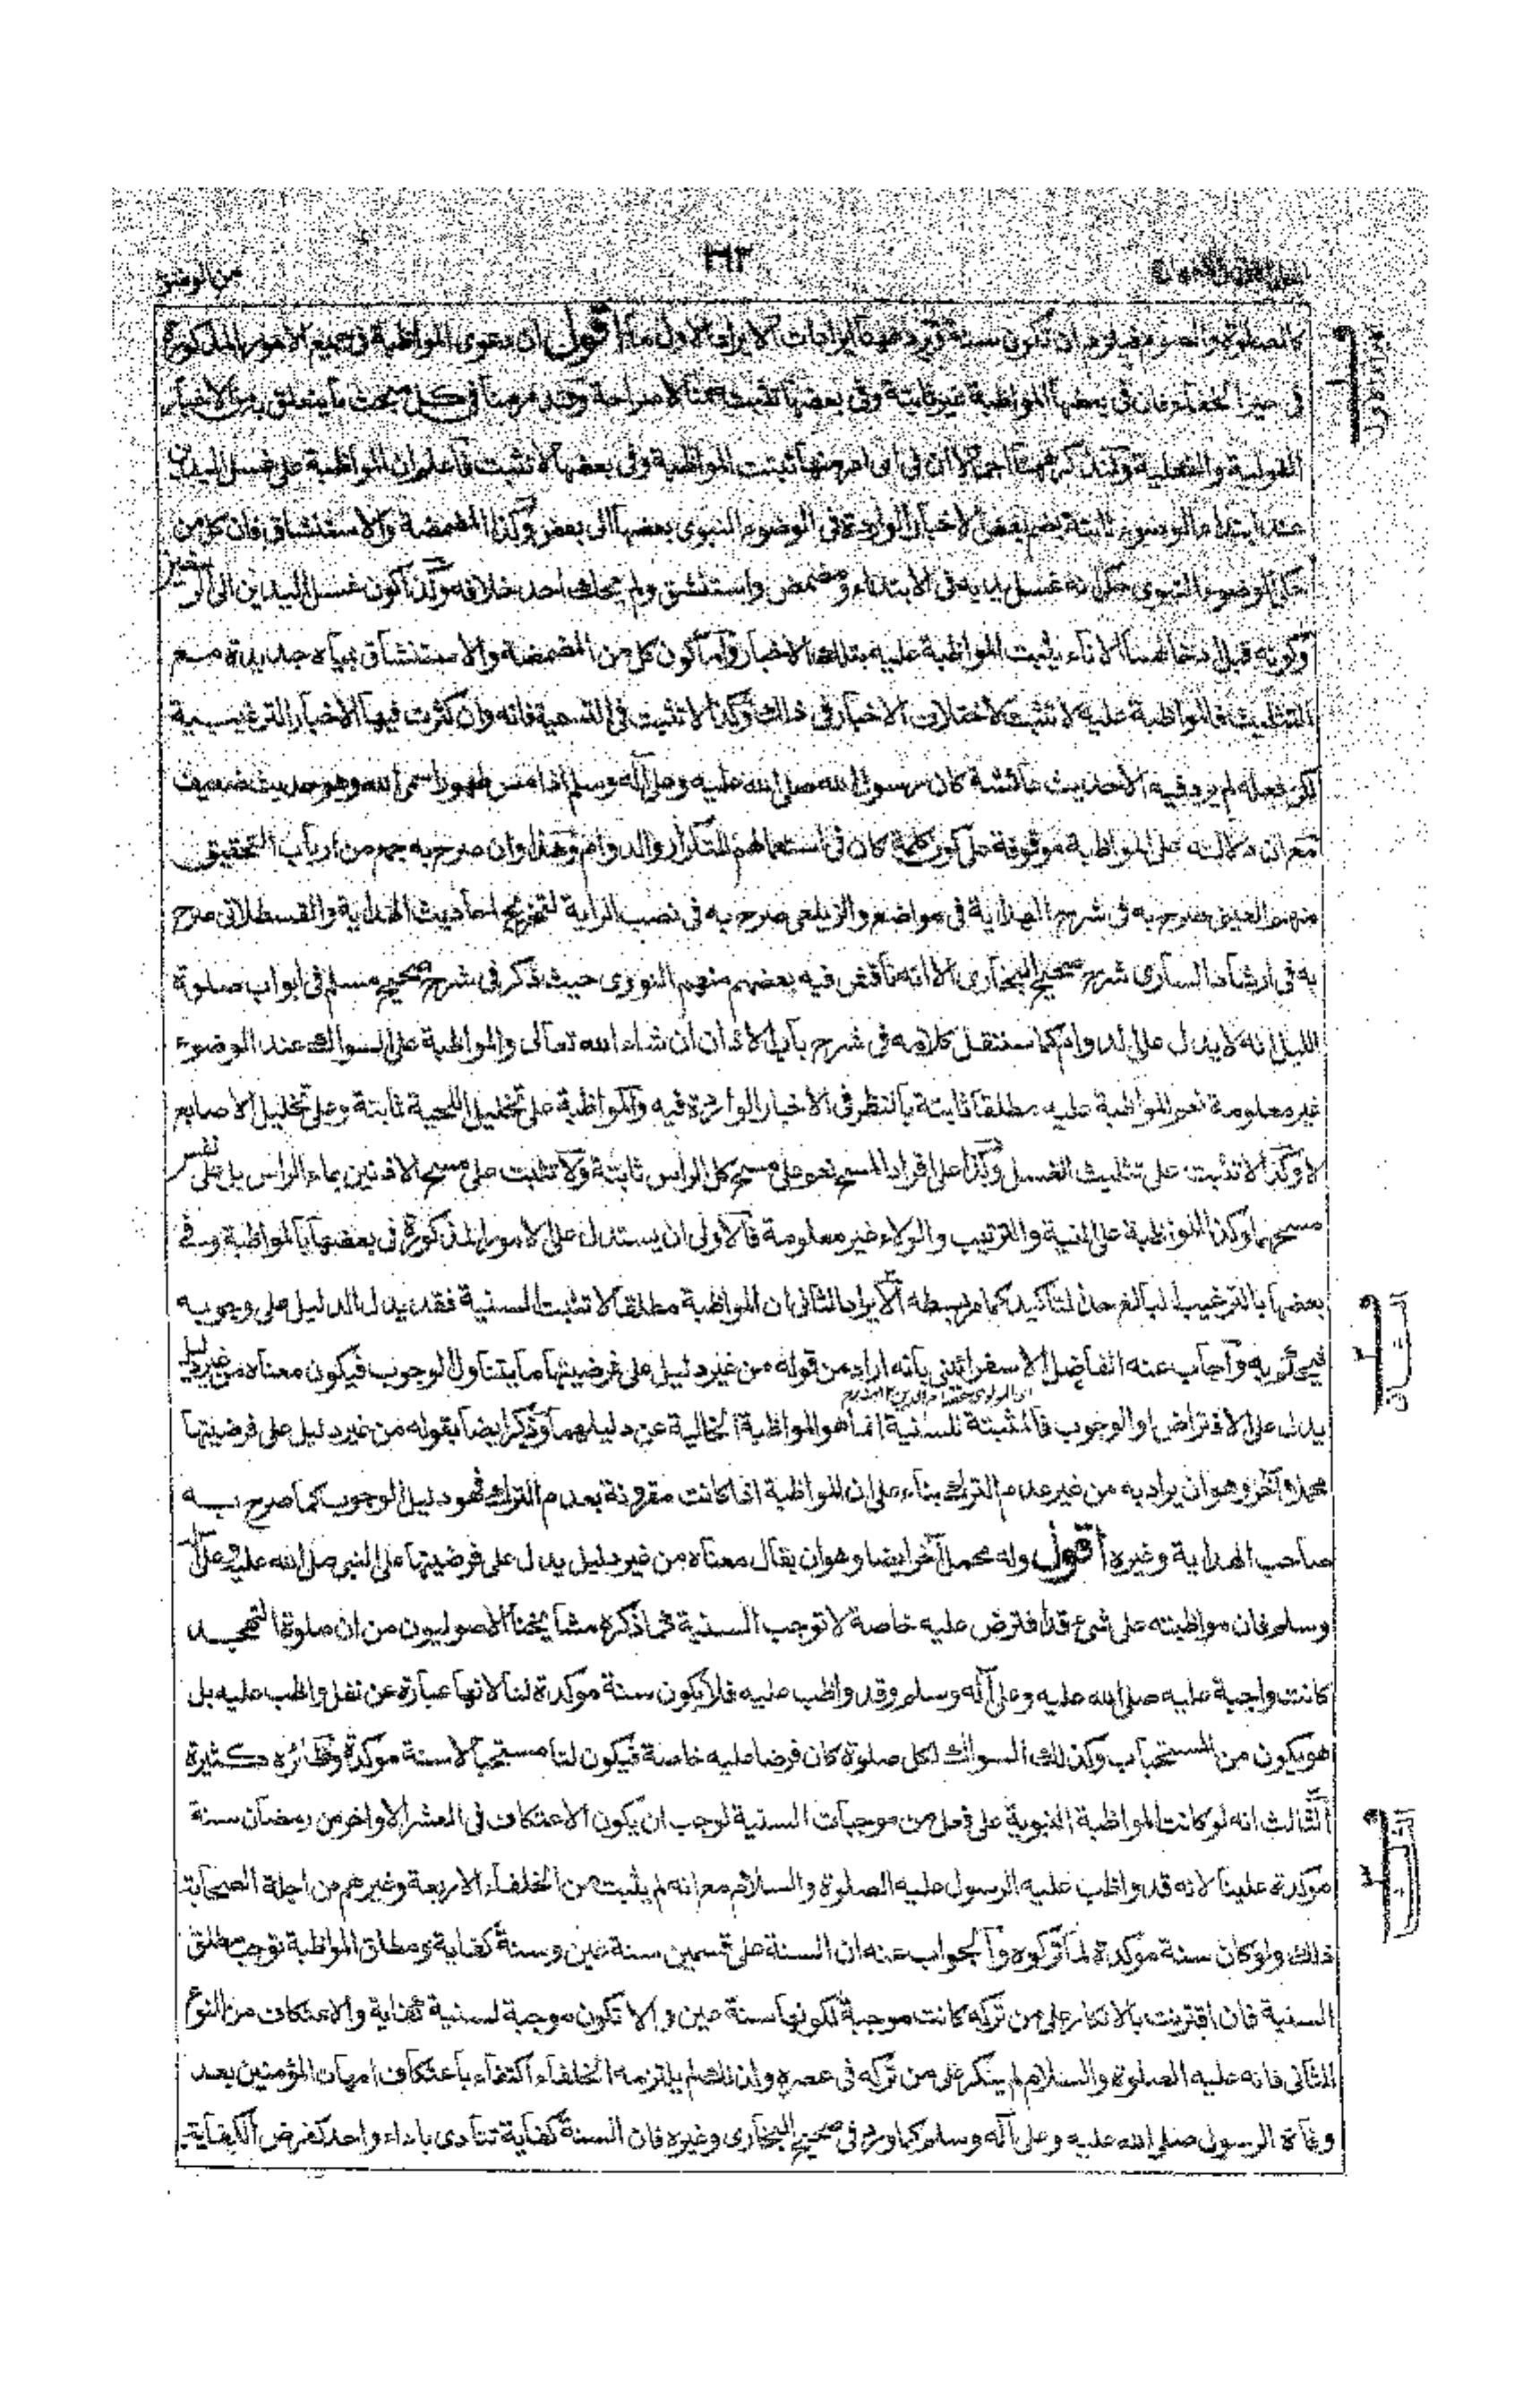 ١٦٣
من الوضوء
كالصلوة والصوم فيلزم ان تكون سنة وترد ههنا ايرادات الايراد الاول ما اقول ان دعوى المواظبة فى جميع الامور المذكورة
فى حيز الخفاء فان فى بعضها المواظبة غير ثابتة وفى بعضها تثبت ضمنا لا صراحة وقد مر منا فى كل مبحث ما يتعلق به من الاخبار
القولية والفعلية ولنذكر ههنا اجمالا ان فى اى امر منها ثبتت المواظبة وفى بعضها لا تثبت فاعلم ان المواظبة على غسل اليدين
عند ابتداء الوضوء ثابتة بضم بعض الاخبار الواردة فى الوضوء النبوى بعضها الى بعض وكذا المضمضة والاستنشاق فان كل من
حكى الوضوء النبوى حكى انه غسل يديه فى الابتداء ومضمض واستنشق ولم يحك احد خلافه وكذا كون غسل اليدين الى الرسغين
وكونه قبل ادخالهما الاناء يثبت المواظبة عليه بتلك الاخبار واما كون كل من المضمضة والاستنشاق بمياه جديدة مع
التثليث فالمواظبة عليه لا تثبت لاختلاف الاخبار فى ذلك وكذا لا تثبت فى التسمية فانه وان كثرت فيها الاخبار الترغيبية
لكن فعله لم يرد فيه الا حديث عائشة كان رسول الله صلى الله عليه وعلى آله وسلم اذا مس طهورا سمى الله وهو حديث ضعيف
مع ان دلالته على المواظبة موقوفة على كون كلمة كان فى استعمالهم للتكرار والدوام وهذا وان صرح به جمع من ارباب التحقيق
منهم العينى صرح به فى شرح الهداية فى مواضع والزيلعى صرح به فى نصب الراية لتخريج احاديث الهداية والقسطلانى صرح
به فى ارشاد السارى شرح صحيح البخارى الا انه ناقش فيه بعضهم منهم النووى حيث ذكر فى شرح صحيح مسلم فى ابواب صلوة
الليل انه لا يدل على الدوام كما سننقل كلامه فى شرح باب الاذان ان شاء الله تعالى والمواظبة على السواك عند الوضوء
غير معلومة نعم المواظبة عليه مطلقا ثابتة بالنظر فى الاخبار الواردة فيه والمواظبة على تخليل اللحية ثابتة وعلى تخليل الاصابع
لا وكذا لا تثبت على تثليث الغسل وكذا على افراد المسح نعم على مسح كل الراس ثابتة ولا تثبت على مسح الاذنين بماء الراس بل على نفس
مسحهما وكذا المواظبة على النية والترتيب والولاء غير معلومة فالاولى ان يستدل على الامور المذكورة فى بعضها بالمواظبة وفى
بعضها بالترغيب البالغ حد التاكيد كما مر بسطه الايراد الثانى ان المواظبة مطلقا لا تثبت السنية فقد يدل الدليل على وجوبه
فيحكم به وآجاب عنه الفاضل الاسفرائنى بانه اراد من قوله من غير دليل على فرضيتها ما يتناول الوجوب فيكون معناه من غير دليل
يدل على الافتراض او الوجوب فالمثبتة للسنية انما هو المواظبة الخالية عن دليلهما وذكر ايضا بقوله من غير دليل على فرضيتها
محملا آخر وهو ان يراد به من غير عدم الترك بناء على ان المواظبة اذا كانت مقرونة بعدم الترك فهو دليل الوجوب كما صرح به
صاحب الهداية وغيره اقول وله محمل آخر ايضا وهو ان يقال معناه من غير دليل يدل على فرضيتها على النبى صلى الله عليه وعلى آله
وسلم فان مواظبته على شئ قد افترض عليه خاصة لا توجب السنية لما ذكره مشايخنا الاصوليون من ان صلوة التهجد
كانت واجبة عليه صلى الله عليه وعلى آله وسلم وقد واظب عليه فلا يكون سنة موكدة لنا لانها عبارة عن نفل واظب عليه بل
هو يكون من المستحباب وكذلك السواك لكل صلوة كان فرضا عليه خاصة فيكون لنا مستحبا لا سنة موكدة ونظائره كثيرة
الثالث انه لو كانت المواظبة النبوية على فعل من موجبات السنية لوجب ان يكون الاعتكاف فى العشر الاواخر من رمضان سنة
موكدة علينا لانه قد واظب عليه الرسول عليه الصلوة والسلام مع انه لم يثبت من الخلفاء الاربعة وغيرهم من اجلة الصحابة
ذلك ولو كان سنة موكدة لما تركوه والجواب عنه ان السنة على قسمين سنة عين وسنة كفاية ومطلق المواظبة توجب مطلق
السنية فان اقترنت بالانكار على من تركه كانت موجبة لكونها سنة عين والا تكون موجبة لسنية كفاية والاعتكاف من النوع
الثانى فانه عليه الصلوة والسلام لم ينكر على من تركه فى عصره ولذلك لم يلتزمه الخلفاء اكتفاء باعتكاف امهات المؤمنين بعد
وفاة الرسول صلى الله عليه وعلى آله وسلم كما ورد فى صحيح البخارى وغيره فان السنة كفاية تتادى باداء واحد كفرض الكفاية